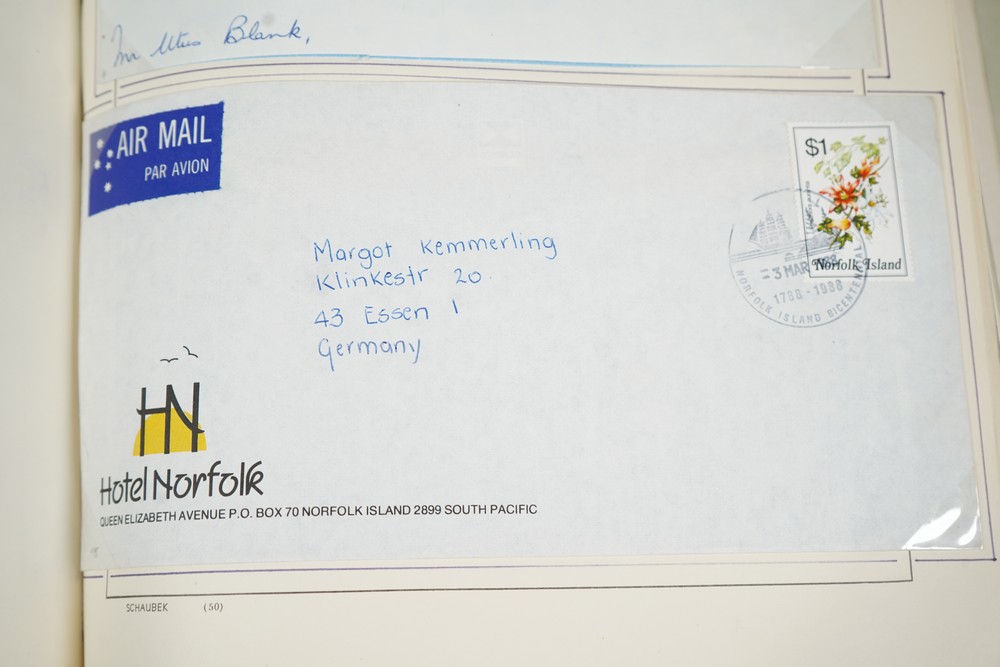 Blank,
AIR MAIL
PAR AVION
$1
Norfolk Island
3 MAR
1788 - 1988
NORFOLK ISLAND BICENTENNIAL
Margot Kemmerling
Klinkestr 20.
43 Essen 1
Germany
HN
Hotel Norfolk
QUEEN ELIZABETH AVENUE P.O. BOX 70 NORFOLK ISLAND 2899 SOUTH PACIFIC
SCHAUBEK (50)